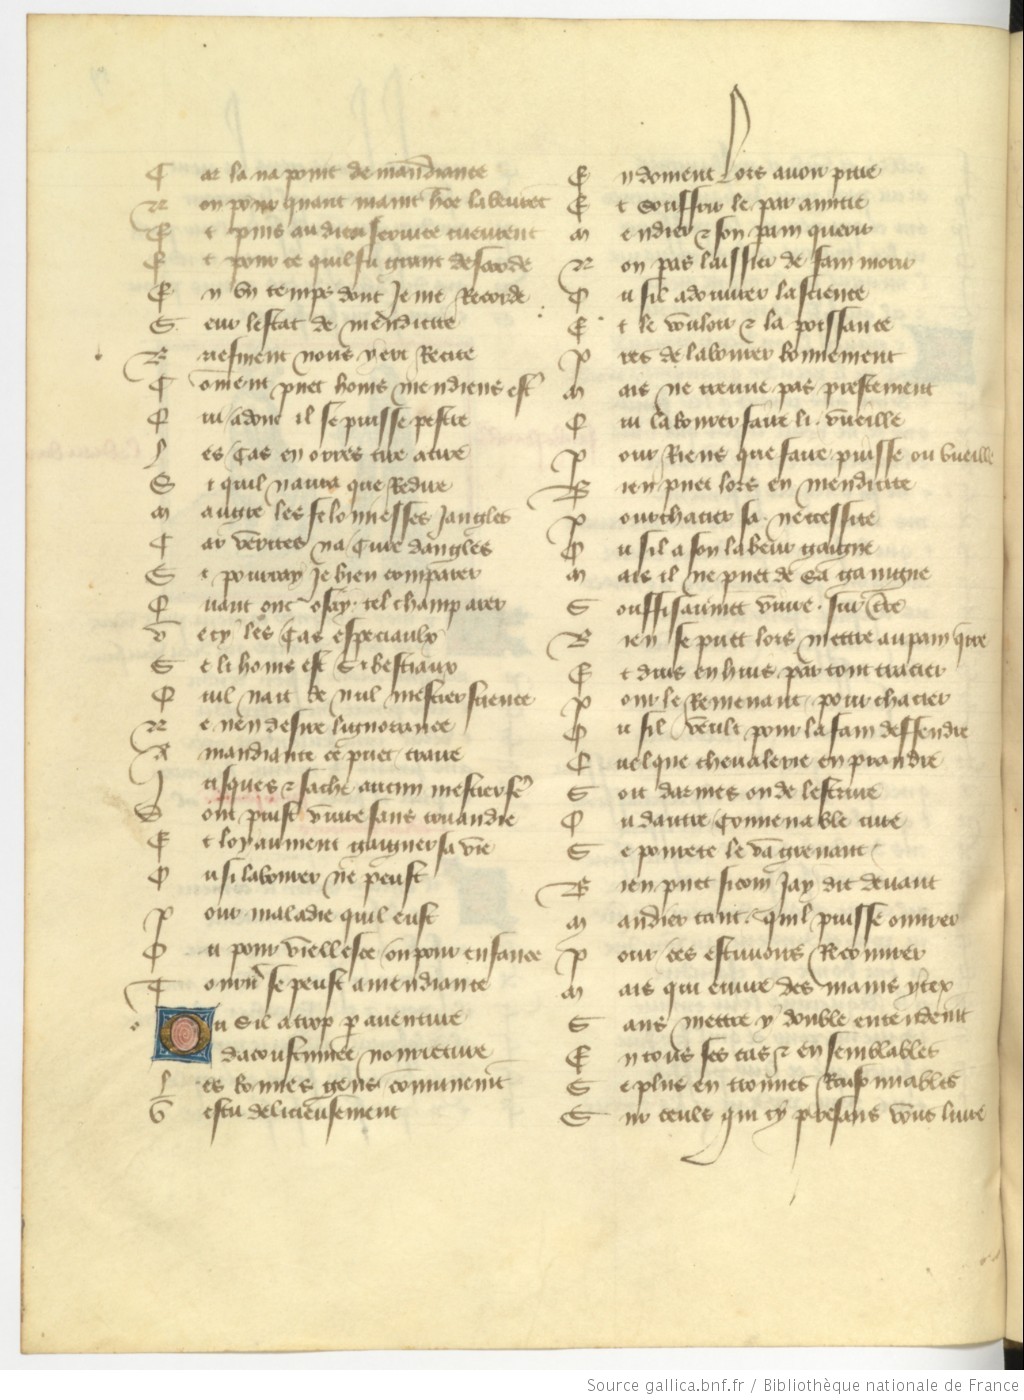 Car la na point de mandiante
Non pour quant maint hoe labeurent
Et puis au dieu service queurent
Et pour ce quil fu grant descorde
En un temps dont Je me Recorde
Seur lestat de mendicite
Briefment vous yert Recite
Coment puet homs mendiens est
Qui adonc il se puisse pestre
Les Cas en orres tire a tire
Si quil naura que Redire
Maugre les felonnesses Jangles
Car verites na Cure dangles
Si pourray Je bien comparer
Quant onc osay tel champ arer
Vecy les Cas especiaulx
Se li homs est Si bestiaux
Quil nait de nul mestier science
Ne nen desire lignorance
A mandiante ce puet traire
Jusques sache aucun mestier fe
Dont puist vivre sans truandie
Et loyaument gaigner sa vie
Ou si labourer ne peust
Pour maladie quil eust
Ou pour viellesce ou pour enfance
Tourn se peust a mendiante
Ou Sil a trop p aventure
dacoustumee nourreture
Les bonnes gens comunement
Vescu delicieusement
En doivent lors avoir pitie
Et souffrir le par amitie
Mendier et son pain querir
Non pas laissier de fain morir
Ou sil a douvrer la science
Et le vouloir et la poissance
Pres de labourer bonnement
Mais ne treuve pas prestement
Qui labourer faire li vueille
Pour Riens que faire puisse ou vueille
Bien puet lors en mendicite
Pourchacier sa necessite
Ou sil a son labeur gaigne
Mais il ne puet de sa gaaigne
Souffisaument vivre sur tre
Bien se puet lors mettre au pain qrre
Et duis en huis par tout tracier
Pour le Remenant pourchacier
Ou sil veult pour la foi deffendre
Quelque chevalerie emprandre
Soit darmes ou de lescriture
Ou dautre Connenable cure
Se povrete le va grevant
Bien puet sicom Jay dit devant
Mandier tant quil puisse ouvrer
Pour ces estuvoirs Recouvrer
Mais qui euvre des mains ytex
Sans mettre y double entendent
En tous ses cas et en semblables
Se plus en trouves Raisonnables
Sur ceuls qui cy presans vous livre